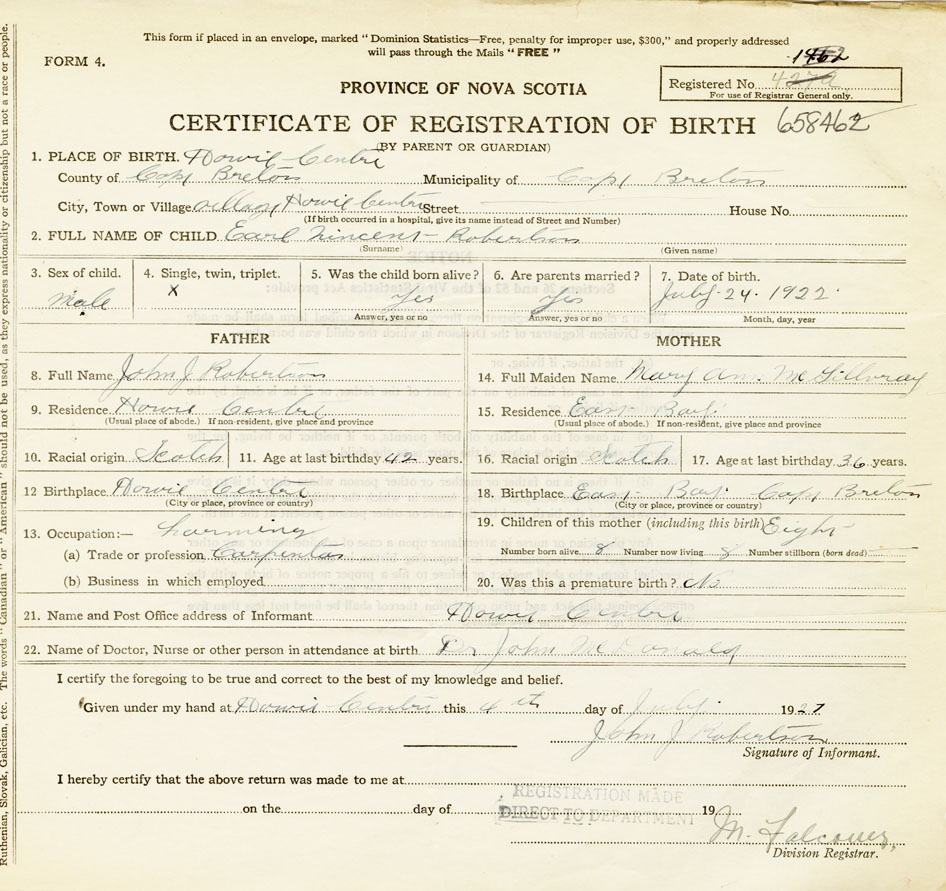 This form if placed in an envelope, marked “ Dominion Statistics—Free, penalty for improper use, $300,” and properly addressed
will pass through the Mails “ FREE ”
FORM 4.
1462
PROVINCE OF NOVA SCOTIA
Registered No. 427a
For use of Registrar General only.
CERTIFICATE OF REGISTRATION OF BIRTH 658462
(BY PARENT OR GUARDIAN)
1. PLACE OF BIRTH. Howie Centre
County of Cape Breton Municipality of Cape Breton
City, Town or Village village Howie Centre Street House No.
(If birth occurred in a hospital, give its name instead of Street and Number)
2. FULL NAME OF CHILD Earl Vincent Robertson
(Surname) (Given name)
3. Sex of child. 4. Single, twin, triplet. 5. Was the child born alive? 6. Are parents married? 7. Date of birth.
male x yes yes July 24. 1922
Answer, yes or no Answer, yes or no Month, day, year
FATHER MOTHER
8. Full Name John J Robertson 14. Full Maiden Name Mary Ann McGillvray
9. Residence Howie Centre 15. Residence East Bay
(Usual place of abode.) If non-resident, give place and province (Usual place of abode.) If non-resident, give place and province
10. Racial origin Scotch 11. Age at last birthday 42 years. 16. Racial origin Scotch 17. Age at last birthday 36 years.
12 Birthplace Howie Centre 18. Birthplace East Bay Cape Breton
(City or place, province or country) (City or place, province or country)
13. Occupation:— Farming 19. Children of this mother (including this birth) Eight
(a) Trade or profession Carpenter Number born alive 8 Number now living 8 Number stillborn (born dead)
(b) Business in which employed 20. Was this a premature birth? No
21. Name and Post Office address of Informant Howie Centre
22. Name of Doctor, Nurse or other person in attendance at birth Dr John McDonald
I certify the foregoing to be true and correct to the best of my knowledge and belief.
Given under my hand at Howie Centre this 4th day of July 1927
John J Robertson
Signature of Informant.
I hereby certify that the above return was made to me at
on the day of 19
REGISTRATION MADE
DIRECT TO DEPARTMENT
M. Falconer
Division Registrar.
Ruthenian, Slovak, Galician, etc. The words “ Canadian ” or “ American ” should not be used, as they express nationality or citizenship but not a race or people.